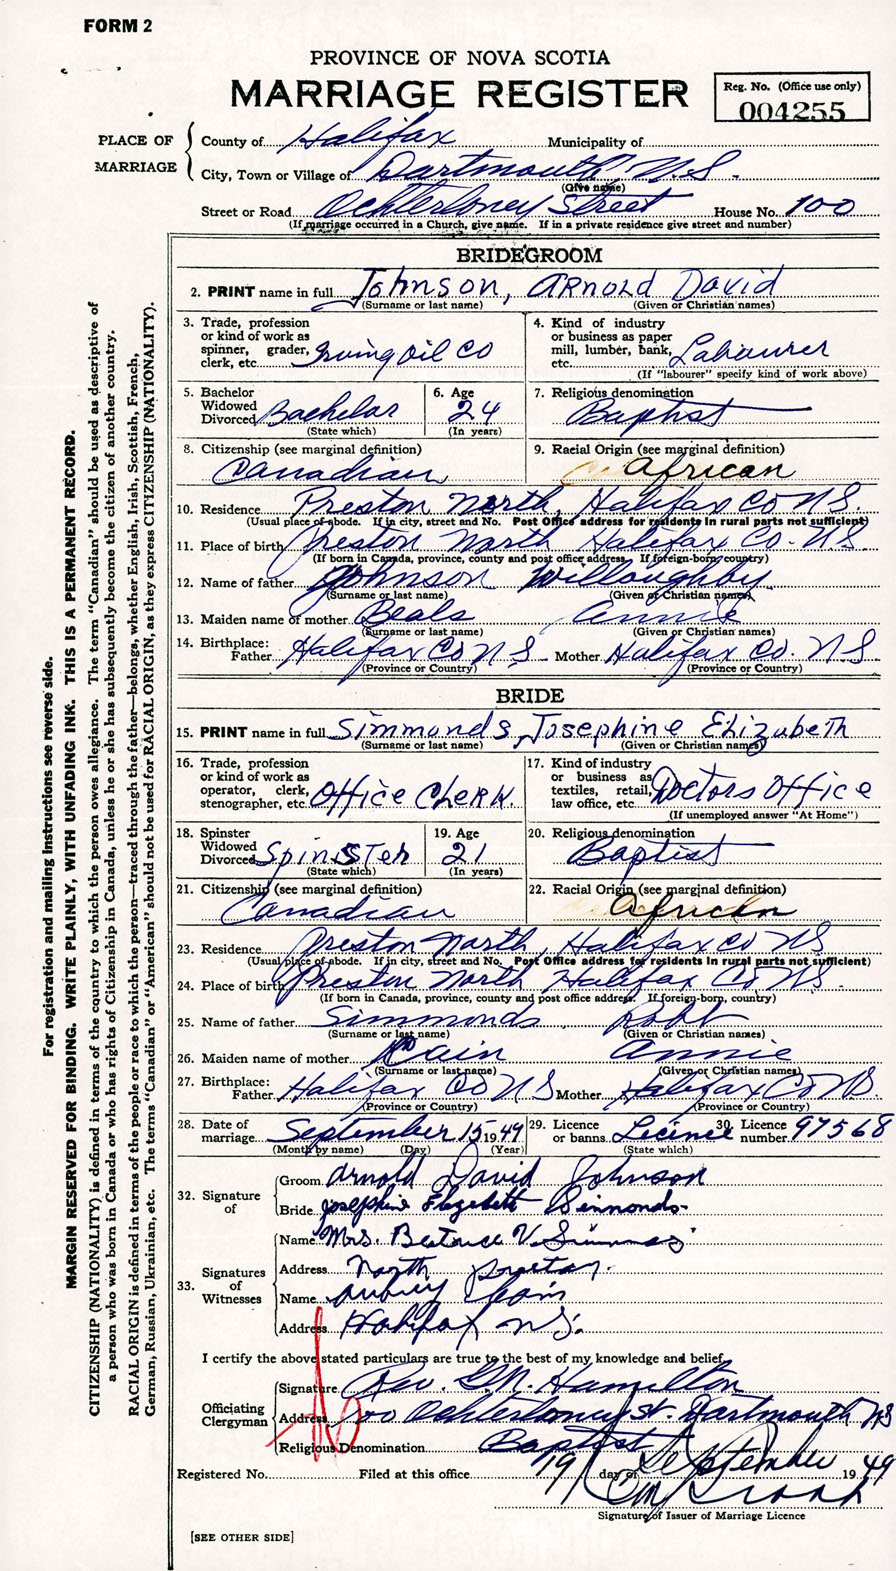 FORM 2
PROVINCE OF NOVA SCOTIA
MARRIAGE REGISTER
Reg. No. (Office use only)
004255
PLACE OF MARRIAGE
County of Halifax Municipality of
City, Town or Village of Dartmouth N.S.
(Give name)
Street or Road Ochterloney Street House No. 100
(If marriage occurred in a Church, give name. If in a private residence give street and number)
BRIDEGROOM
2. PRINT name in full Johnson, Arnold David
(Surname or last name) (Given or Christian names)
3. Trade, profession or kind of work as spinner, grader, clerk, etc. Irving Oil Co
4. Kind of industry or business as paper mill, lumber, bank, etc. Labourer
(If "labourer" specify kind of work above)
5. Bachelor Widowed Divorced Bachelor
(State which)
6. Age 24
(In years)
7. Religious denomination
Baptist
8. Citizenship (see marginal definition)
Canadian
9. Racial Origin (see marginal definition)
African
10. Residence Preston North, Halifax Co N.S.
(Usual place of abode. If in city, street and No. Post Office address for residents in rural parts not sufficient)
11. Place of birth Preston North Halifax Co. N.S.
(If born in Canada, province, county and post office address. If foreign-born, country)
12. Name of father Johnson Willoughby
(Surname or last name) (Given or Christian names)
13. Maiden name of mother Beals Annie
(Surname or last name) (Given or Christian names)
14. Birthplace:
Father Halifax Co N S Mother Halifax Co. N S
(Province or Country) (Province or Country)
BRIDE
15. PRINT name in full Simmonds, Josephine Elizabeth
(Surname or last name) (Given or Christian names)
16. Trade, profession or kind of work as operator, clerk, stenographer, etc. Office Clerk.
17. Kind of industry or business as textiles, retail, law office, etc. Doctors Office
(If unemployed answer "At Home")
18. Spinster Widowed Divorced Spinster
(State which)
19. Age 21
(In years)
20. Religious denomination
Baptist
21. Citizenship (see marginal definition)
Canadian
22. Racial Origin (see marginal definition)
African
23. Residence Preston North, Halifax Co NS
(Usual place of abode. If in city, street and No. Post Office address for residents in rural parts not sufficient)
24. Place of birth Preston North Halifax Co NS
(If born in Canada, province, county and post office address. If foreign-born, country)
25. Name of father Simmonds Robt
(Surname or last name) (Given or Christian names)
26. Maiden name of mother Cain Annie
(Surname or last name) (Given or Christian names)
27. Birthplace:
Father Halifax Co N S Mother Halifax Co NS.
(Province or Country) (Province or Country)
28. Date of marriage September 15 1949
(Month by name) (Day) (Year)
29. Licence or banns Licence
(State which)
30. Licence number 97568
32. Signature of
Groom Arnold David Johnson
Bride Josephine Elizabeth Simmonds
33. Signatures of Witnesses
Name Mrs. Beatrice V. Simmonds
Address North Preston.
Name Aubrey Cain
Address Halifax N.S.
I certify the above stated particulars are true to the best of my knowledge and belief.
Officiating Clergyman
Signature Rev. Hamilton
Address 100 Ochterloney St. Dartmouth NS
Religious Denomination Baptist
Registered No. Filed at this office 19 day of September 1949
Signature of Issuer of Marriage Licence
[SEE OTHER SIDE]
For registration and mailing instructions see reverse side.
MARGIN RESERVED FOR BINDING. WRITE PLAINLY, WITH UNFADING INK. THIS IS A PERMANENT RECORD.
CITIZENSHIP (NATIONALITY) is defined in terms of the country to which the person owes allegiance. The term "Canadian" should be used as descriptive of
a person who was born in Canada or who has rights of Citizenship in Canada, unless he or she has subsequently become the citizen of another country.
RACIAL ORIGIN is defined in terms of the people or race to which the person—traced through the father—belongs, whether English, Irish, Scottish, French,
German, Russian, Ukrainian, etc. The terms "Canadian" or "American" should not be used for RACIAL ORIGIN, as they express CITIZENSHIP (NATIONALITY).